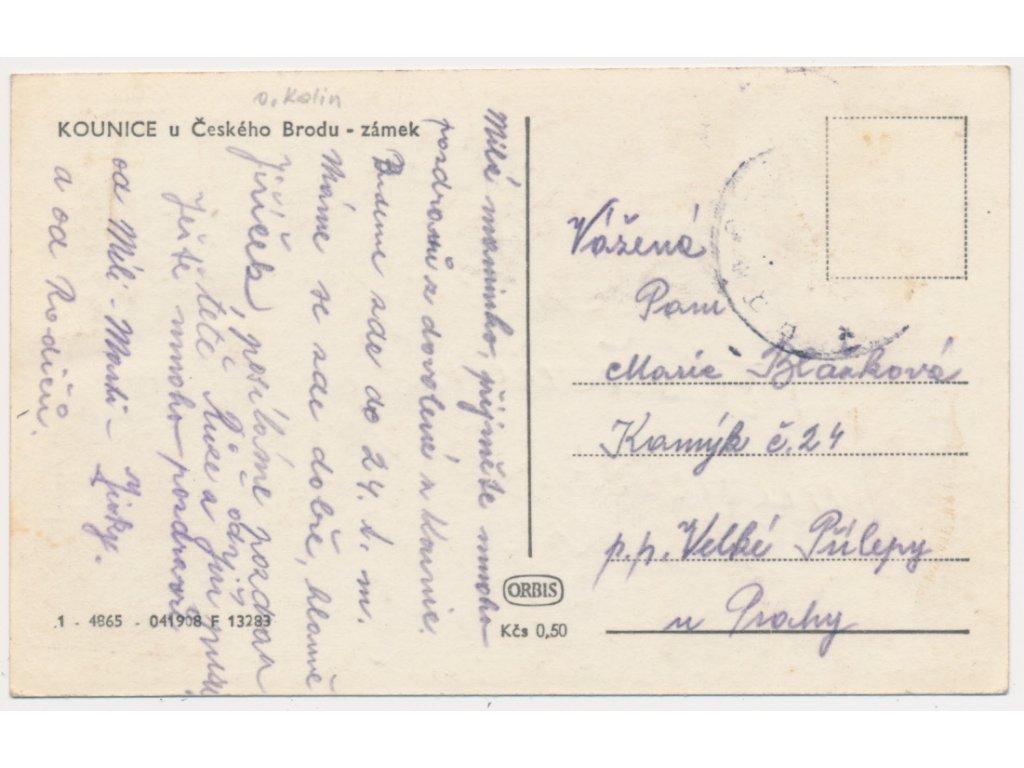 o. Kolin
KOUNICE u Českého Brodu - zámek
Milá maminko, přijměte mnoho
pozdravů z dovolené v Kounic.
Budeme zde do 24. t. m.
Máme se zde dobře, hlavně
Jiříček, posíláme pozdrav
tetě Růže a
Ještě mnoho pozdravů
od Mili - Mosti - Jirky.
a od Rodičů.
1 - 4865 - 041908 F 13283
ORBIS
Kčs 0,50
Vážená
Paní
Marie Blažková
Kamýk č. 24
p.p. Velké Přílepy
u Prahy